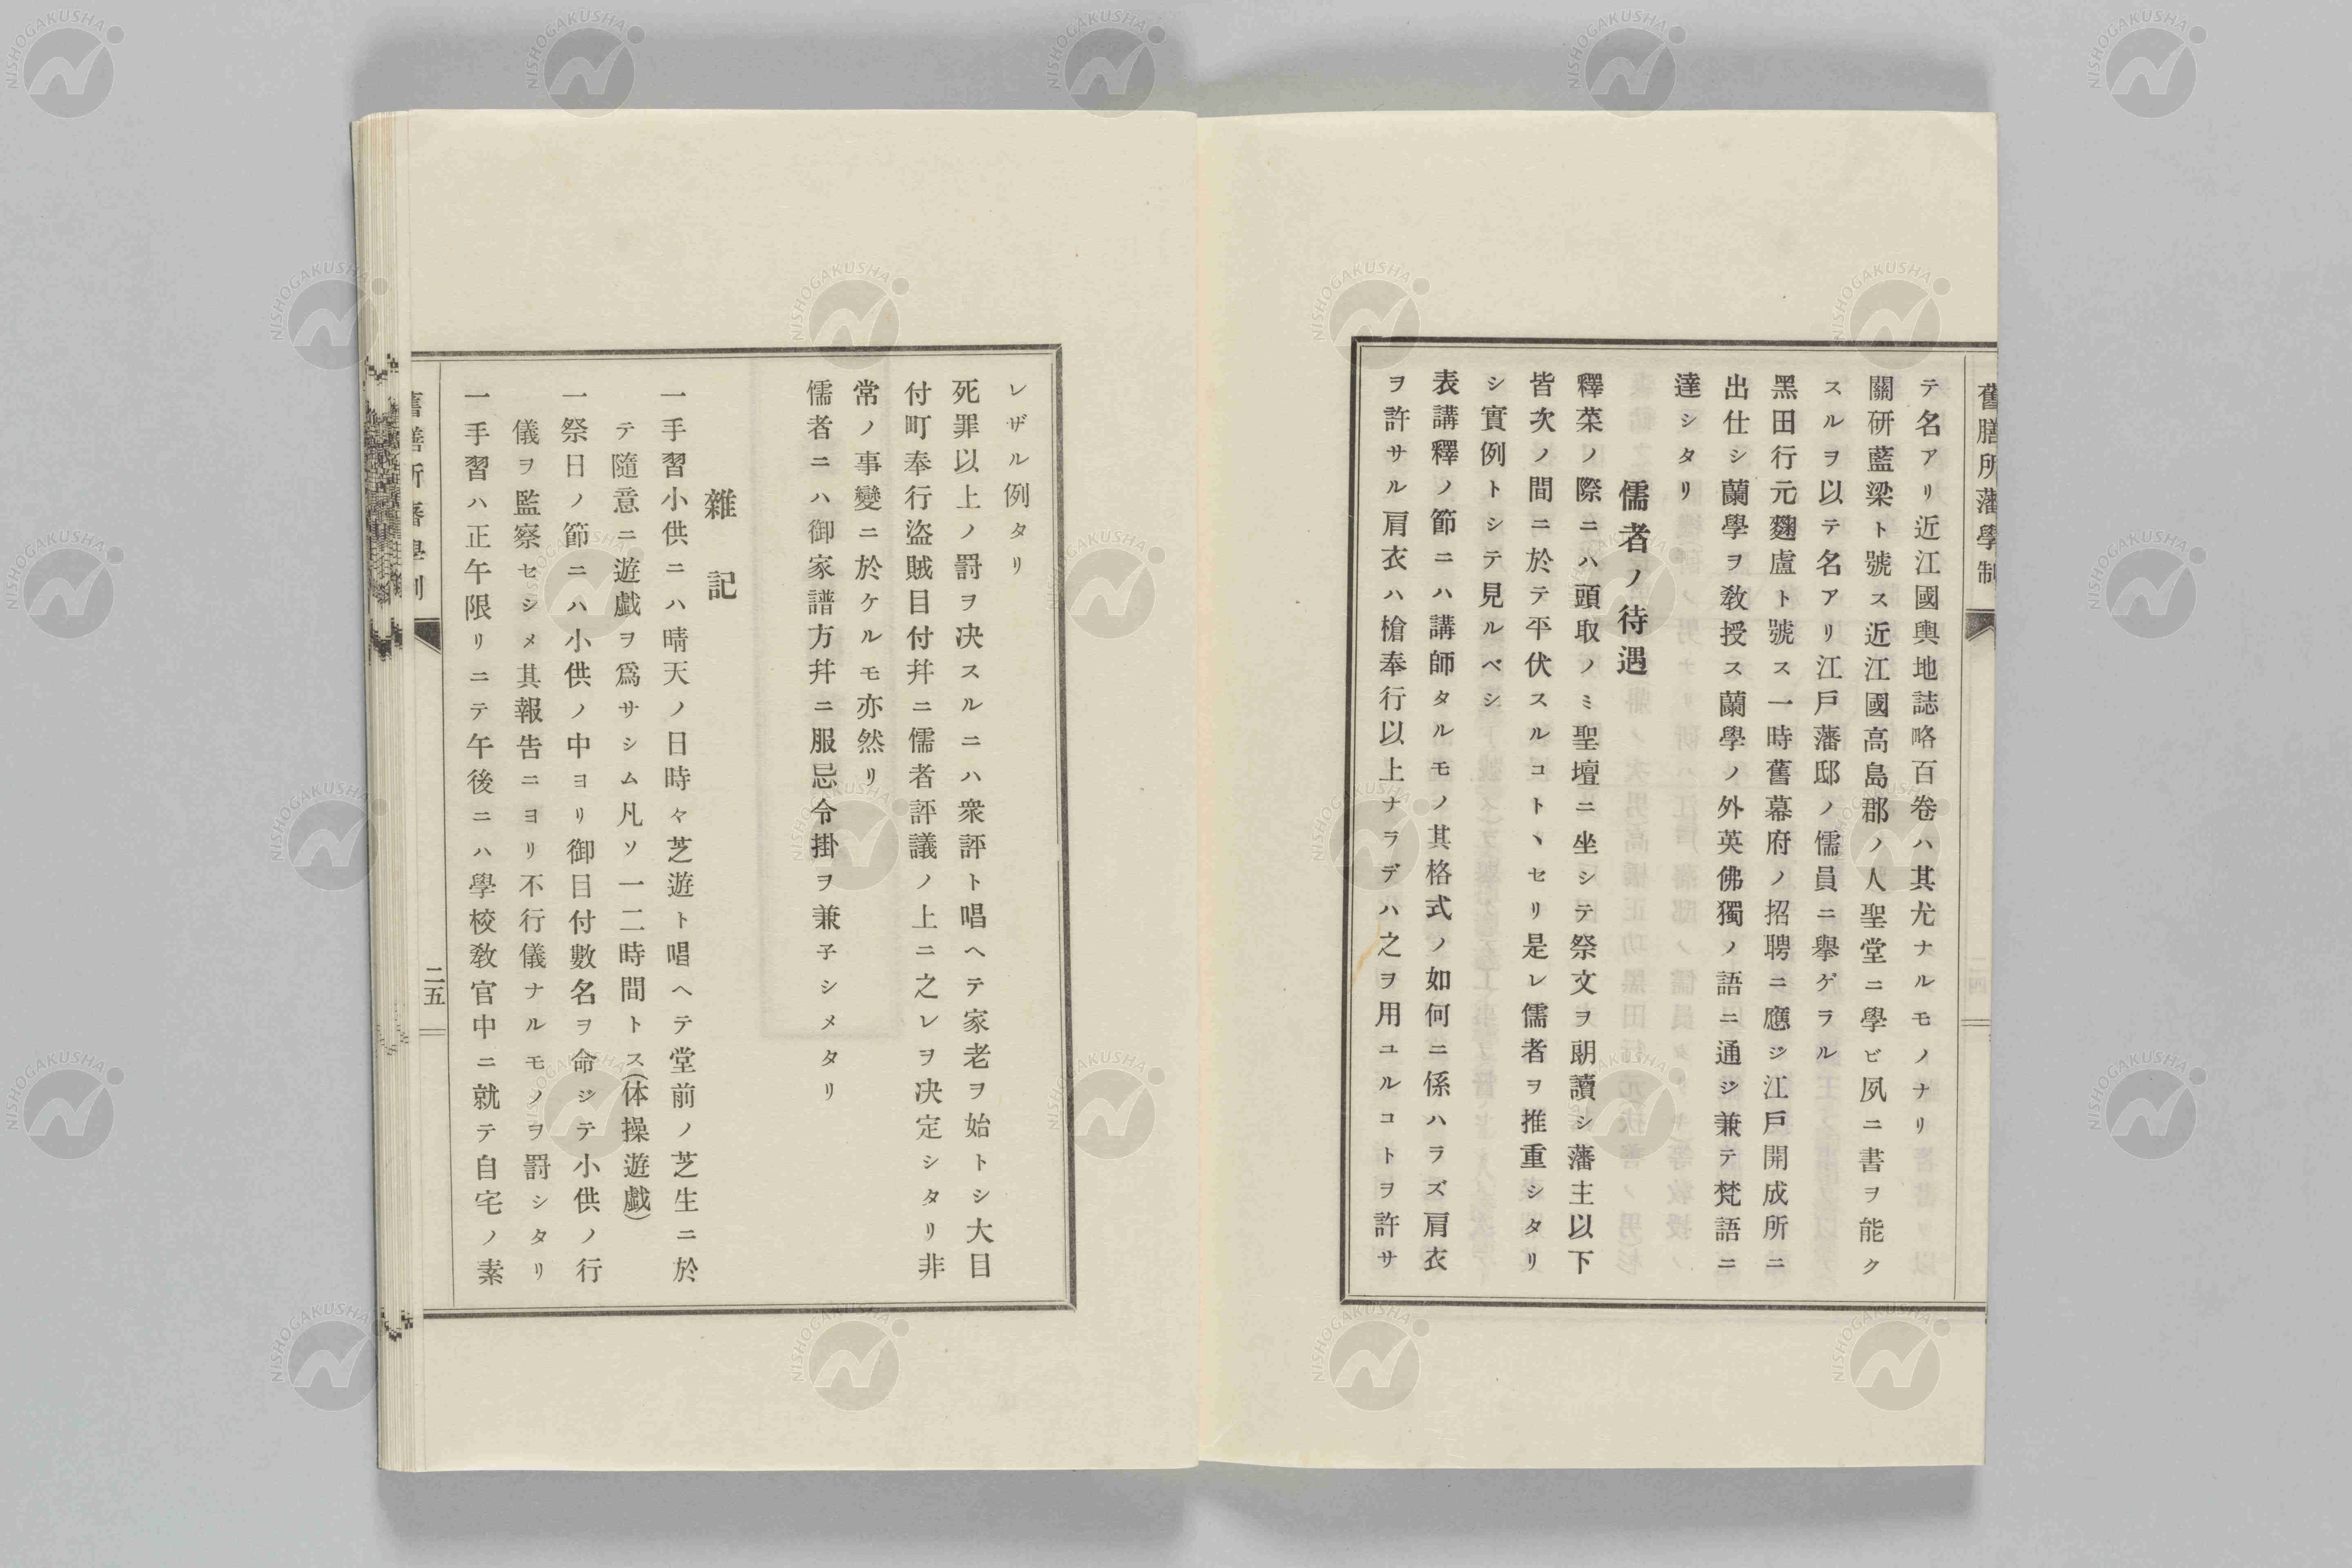 舊膳所藩學制
テ名アリ近江國輿地誌略百卷ハ其尤ナルモノナリ
關研藍梁ト號ス近江國高島郡ノ人聖堂ニ學ビ夙ニ書ヲ能ク
スルヲ以テ名アリ江戶藩邸ノ儒員ニ擧ゲラル
黑田行元麴盧ト號ス一時舊幕府ノ招聘ニ應ジ江戶開成所ニ
出仕シ蘭學ヲ敎授ス蘭學ノ外英佛獨ノ語ニ通ジ兼テ梵語ニ
達シタリ
儒者ノ待遇
釋菜ノ際ニハ頭取ノミ聖壇ニ坐シテ祭文ヲ朗讀シ藩主以下
皆次ノ間ニ於テ平伏スルコトヽセリ是レ儒者ヲ推重シタリ
シ實例トシテ見ルベシ
表講釋ノ節ニハ講師タルモノ其格式ノ如何ニ係ハラズ肩衣
ヲ許サル肩衣ハ槍奉行以上ナラデハ之ヲ用ユルコトヲ許サ
レザル例タリ
死罪以上ノ罰ヲ決スルニハ衆評ト唱ヘテ家老ヲ始トシ大目
付町奉行盜賊目付幷ニ儒者評議ノ上ニ之レヲ決定シタリ非
常ノ事變ニ於ケルモ亦然リ
儒者ニハ御家譜方幷ニ服忌令掛ヲ兼子シメタリ
雜記
一手習小供ニハ晴天ノ日時々芝遊ト唱ヘテ堂前ノ芝生ニ於
テ隨意ニ遊戲ヲ爲サシム凡ソ一二時間トス(体操遊戲)
一祭日ノ節ニハ小供ノ中ヨリ御目付數名ヲ命ジテ小供ノ行
儀ヲ監察セシメ其報告ニヨリ不行儀ナルモノヲ罰シタリ
一手習ハ正午限リニテ午後ニハ學校敎官中ニ就テ自宅ノ素
舊膳所藩學制
二五
NISHOGAKUSHA